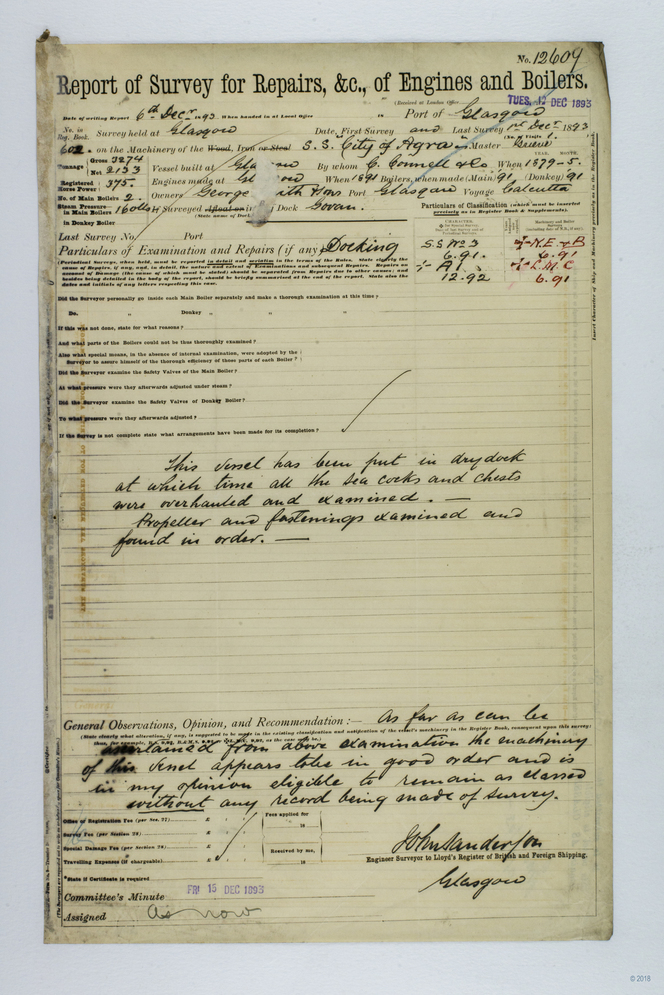 No. 12609
Report of Survey for Repairs, &c., of Engines and Boilers.
(Received at London Office TUES. 12 DEC 1893
Date of writing Report 6th Decr 1893 When handed in at Local Office 18 Port of Glasgow
No. in Reg. Book. Survey held at Glasgow Date, First Survey and Last Survey 1st Decr 1893
(No. of Visits 1.)
602 on the Machinery of the Wood, Iron or Steel S.S. "City of Agra" Master
Tonnage Gross 3274 Net 2133 Vessel built at Glasgow By whom C. Connell & Co When 1879-5.
Registered Horse Power 375. Engines made at Glasgow When 1891 Boilers, when made (Main) 91 (Donkey) 91
No. of Main Boilers 2. Owners George Smith & Sons Port Glasgow Voyage Calcutta
Steam Pressure in Main Boilers 160 lbs If Surveyed Afloat or in Dock Govan.
(State name of Dock)
in Donkey Boiler
Particulars of Classification (which must be inserted precisely as in Register Book & Supplements).
Last Survey No. Port
Particulars of Examination and Repairs (if any) Docking
(Periodical Surveys, when held, must be reported in detail and seriatim in the terms of the Rules.
S.S. No 3 N.E. & B
6.91. 6.91
A1. L.M.C
12.92 6.91
Insert Character of Ship and Machinery precisely as in the Register Book
Did the Surveyor personally go inside each Main Boiler separately and make a thorough examination at this time?
Do. " Donkey " " "
If this was not done, state for what reasons?
And what parts of the Boilers could not be thus thoroughly examined?
Also what special means, in the absence of internal examination, were adopted by the
Surveyor to assure himself of the thorough efficiency of those parts of each Boiler?
Did the Surveyor examine the Safety Valves of the Main Boiler?
At what pressure were they afterwards adjusted under steam?
Did the Surveyor examine the Safety Valves of Donkey Boiler?
To what pressure were they afterwards adjusted?
If the Survey is not complete state what arrangements have been made for its completion?
This vessel has been put in drydock
at which time all the sea cocks and chests
were overhauled and examined. —
Propeller and fastenings examined and
found in order. —
General Observations, Opinion, and Recommendation :— As far as can be
(State clearly what alteration, if any, is suggested to be made in the existing classification and notification of the vessel's machinery in the Register Book, consequent upon this survey;
ascertained from above examination the machinery
of this vessel appears to be in good order and is
in my opinion eligible to remain as classed
without any record being made of survey.
Office or Registration Fee (per Sec. 77) £ : : Fees applied for
Survey Fee (per Section 28) £ : : 18
Special Damage Fee (per Section 28) £ : : Received by me,
Travelling Expenses (if chargeable) £ : : 18
John Sanderson
Engineer Surveyor to Lloyd's Register of British and Foreign Shipping.
Glasgow
*State if Certificate is required
Committee's Minute FRI 15 DEC 1893
Assigned As now
© 2018